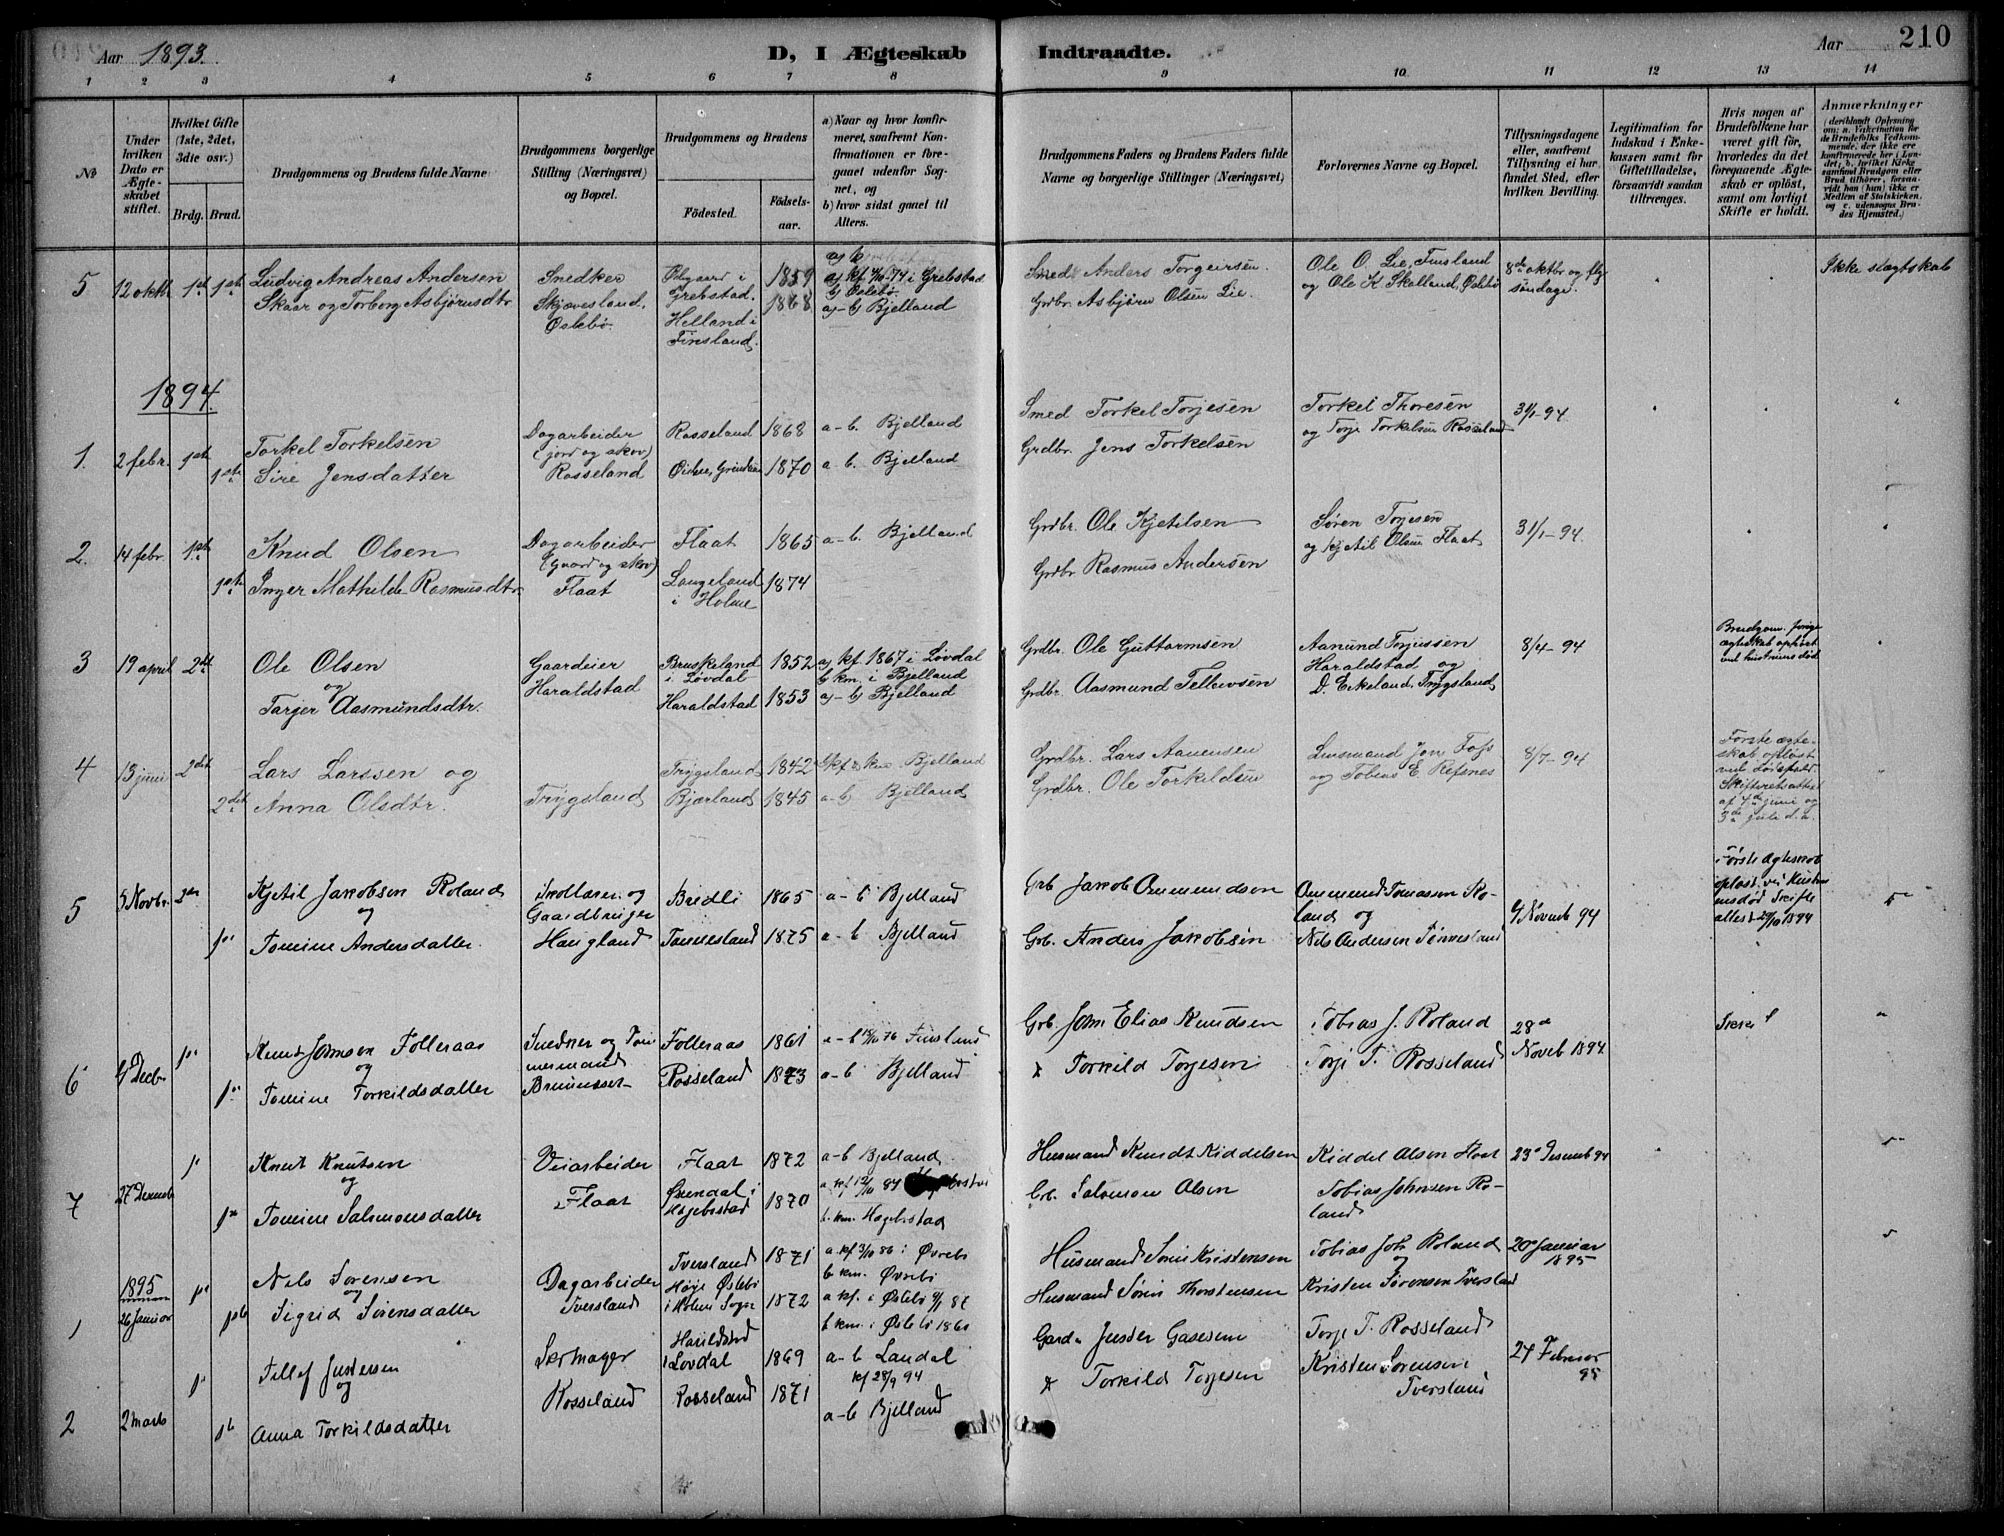 Aar 1893. D, I Ægteskab Indtraadte. Aar 210
1 2 3 4 5 6 7 8 9 10. 11 12 13 14
№
Under hvilken Dato er Ægteskabet stiftet.
Hvilket Gifte (1ste, 2det, 3die osv.)
Brdg. Brud.
Brudgommens og Brudens fulde Navne
Brudgommens borgerlige Stilling (Næringsvei) og Bopæl.
Brudgommens og Brudens
Födested. Födselsaar.
a) Naar og hvor konfirmeret, saafremt Konfirmationen er foregaaet udenfor Sognet, og
b) hvor sidst gaaet til Alters.
Brudgommens Faders og Brudens Faders fulde Navne og borgerlige Stillinger (Næringsvei)
Forlovernes Navne og Bopæl.
Tillysningsdagene eller, saafremt Tillysning ei har fundet Sted, efter hvilken Bevilling.
Legitimation for Indskud i Enkekassen samt for Giftetilladelse, forsaavidt saadan tiltrænges.
Hvis nogen af Brudefolkene har været gift för, hvorledes da det foregaaende Ægteskab er oplöst, samt om lovligt Skifte er holdt.
Anmærkninger
(deriblandt Oplysning om: a. Vakcination for de Brudefolks Vedkommende, der ikke ere konfirmerede her i Landet; b. hvilket Kirkesamfund Brudgom eller Brud tilhörer, forsaavidt han (hun) ikke er Medlem af Statskirken, og c. udensogns Brudes Hjemsted.)
5 12 oktbr 1ste 1ste Ludvig Andreas Andersen
Skaar og Torborg Asbjørnsdtr
Snedker
Skjævesland,
Øslebø.
i Grebstad.
Helland i
Finsland.
1859
1868
i Grebstad
b) Øslebø
a-b Bjelland
Smed Anders Torgeirsen.
Grdbr. Asbjörn Olsen Lie.
Ole O. Lie, Finsland
og Ole K Skalland, Øslebø
8de oktbr og flg
søndage.
Ikke slægtskab
1894.
1. 2 febr. 1ste Torkel Torkelsen
1ste Siri Jensdatter
Dagarbeider
(jord og skov)
Rosseland
Rosseland 1868 a-b. Bjelland
1870 a-b. Bjelland
Smed Torkel Torjesen
Grdbr. Jens Torkelsen
Torkel Thoresen
og Torje Torkelsen Rosseland
31/1-94.
2. 14 febr. 1ste Knud Olsen
1ste Inger Mathilde Rasmusdtr
Dagarbeider
(gaard og skov)
Flaat
Flaat 1865 a-b. Bjelland
Langeland
i Holme 1874
Grdbr. Ole Kjetilsen
Grdbr. Rasmus Andersen
Søren Torjesen
og Kjetil Olsen Flaat
31/1-94.
3 19 april 2det Ole Olsen
og
Targer Aasmundsdtr.
Gaardeier
Haraldstad
Bruskeland
i Løvdal
Haraldstad
1852
1853
a) kf. 1867 i Løvdal
b) km. i Bjelland
a-b Bjelland
Grdbr. Ole Guttormsen
Grdbr. Aasmund Tellevsen
Aanund Torjussen
Haraldstad og
D. Eikeland, Trygsland
8/4-94
Brudgom. forrige
ægteskab ophørt
ved hustruens død
4 13 juni 2det Lars Larssen og
2det Anna Olsdtr.
Trygsland
Trygsland 1842 Bjelland
Bjærland 1845 a-b Bjelland
Grdbr. Lars Aanensen
Grdbr. Ole Torkildsen
Lensmand Jon Foss
og Tobias E. Refsnes
8/7-94
Første ægteskab opløst
ved
Skifteretsattest
af 4de juni og
3de juli d.a.
5 5 Novbr. Kjetil Jakobsen Roland
og
Tomine Andersdatter.
Skollærer og
Gaardbruger
Haugland
Bredli 1865 a-b Bjelland
Tønnesland 1875 a-b Bjelland
Grb Jakob Ommundsen
Grb. Anders Jakobsen
Ommund Tomassen Roland og
Nils Andersen Tønnesland
4 Novemb 94
Første Ægteskab
opløst ved Hustruens død Skifte
attest 29/10 1894
6 Decbr Knut Johnsen Folleraas
og
Tomine Torkildsdatter
Snedker og Tømmermand
Folleraas 1861 Finsland
Rosseland 1873 a-b Bjelland
Grb. John Elias Knudsen
Torkild Torjesen
Tobias J. Roland
Torje T. Rosseland
28de
Noveb 1894.
7 27 Decemb Knut Knutsen
og
Tomine Salomonsdatter
Veiarbeider
Flaat
Flaat 1872 a-b Bjelland
i
Hægebostad 1870
b. km. Hægebostad
Husmand Knudt Kiddelsen
Grb. Salomon Olsen
Kiddel Olsen Flaat
Tobias Johnsen Roland
23de Desemb 94
1895
1 26 Januar Nils Sørensen
og
Sigrid Sørensdatter
Dagarbeider
Tversland
Tversland 1871 a kf 3/10 86 i Øvrebø
b km. Øvrebø
Høie Øslebø
i Holme Sogn 1872 a kf. i Øslebø 9/1 87
b km. i Øslebø
Husmand Søren Kristensen
Husmand Søren Thorstensen
Tobias Joh Roland
og
Kristen Sørensen Tversland
20de Januar
1895
2 2 marts Tellef Justersen
og
Anna Torkildsdatter
Rosseland
i Løvdal 1869 a-b Laudal
kf 28/9 94
Rosseland 1871
a-b Bjelland
Torkild Torjesen
Torje T. Rosseland
Kristen Sørensen
Tversland
24 Februar
95